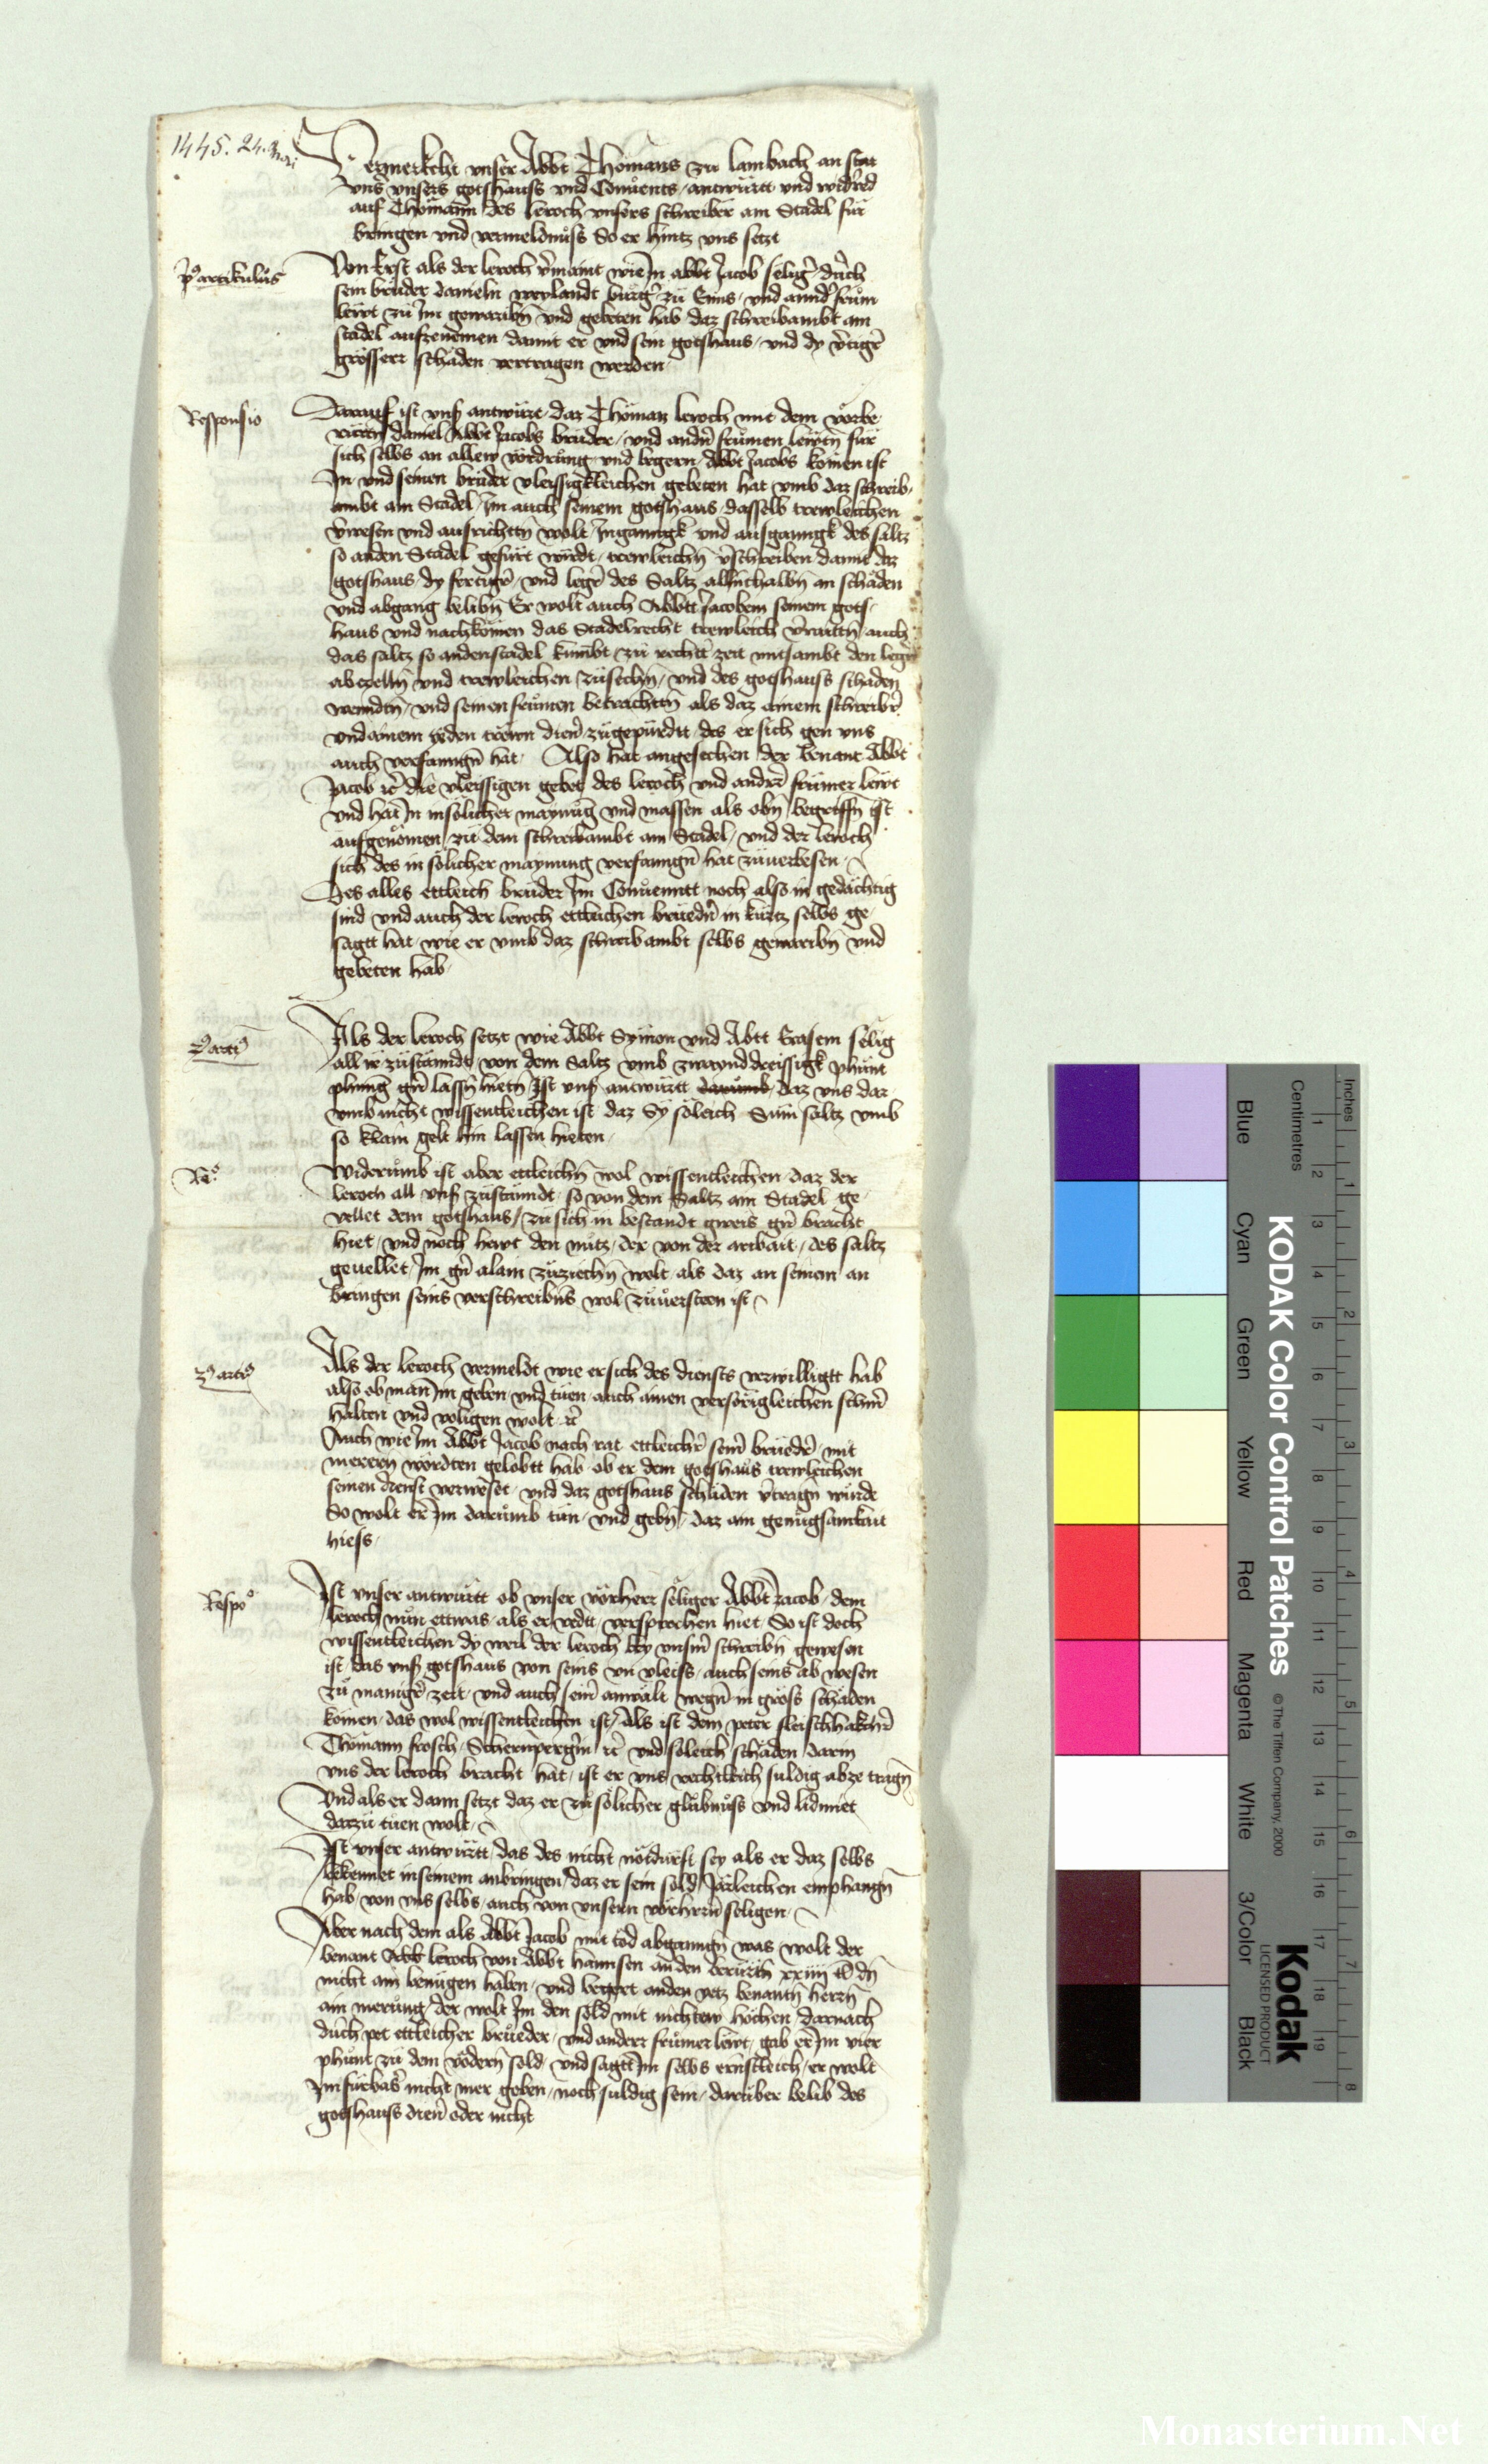 1445. 24. Mai
Vermerkcht unser Abbt Thoman zu Lambach an stat
uns unsers gotshauss und Convents antwürtt und widerred
auf Thoman des leroch unsers schreiber am Stadel für
bringen und vermeldnüss So er hintz uns setzt
p9 artikulus
Von Erst als der leroch vermaint wie In abbt Jacob selig durch
sein brüder danieln weylandt burger zu Enns und annder frum
lewt zu Im geworibn und gebeten hab daz schreibambt am
stadel aufzenemen damit er und sein gotshaus und dy vertiger
grösserr schäden vertragen werden
Responsio
Darauf ist unser antwürt daz Thöman leroch mit dem vorbe
rürten daniel Abbt Jacobs brüder und andern frumen lewtn für
sich selbs an allew vördrung und begern Abbt Jacobs komen ist
In und seinen brüder vleissigkleichen gebeten hat umb daz schreib
ambt am Stadel Im auch seinem gotshaus dasselb trewleichen
verwesen und ausrichttn wolt Inganngk und ausganngk des saltz
so an den Stadel gefürt wirdt trewleichn verschreiben damit daz
gotshaus dy fertiger und leger des Saltz allenthalbn an schäden
und abgang belibn Er wolt auch Abbtt Jacoben seinem gots
haus und nachkomen das Stadelrecht trewleich verraittn auch
das saltz so an den stadel kümbt zu rechtt zeit mitsambt den legern
abczelln und trewleichen züsechn und des gotshauss schaden
wenndtn und seinen frumen betrachttn als daz ainem schreiber
und ainem yeden trewn diener zügepürdtt des er sich gen uns
auch verfanngn hat Also hat angesechen der benant Abbt
Jacob etc die vleissigen gebet des leroch und anderr frümer lewt
und hat In in solicher maynung und massen als obn begriffn ist
aufgenomen zu dem schreibambt am Stadel und der leroch
sich des in solicher maynung verfanngn hat züverbesen
Des alles ettleich brüder Im Convenntt noch also in gedächtig
sind und auch der leroch ettleichen brüedern in kürtz selbs ge
sagtt hat wie er umb daz schreibambt selbs geworibn und
gebeten hab
2 arti
Als der leroch setzt wie Abbt Symon und Abtt Erasem selig
all ir züstänndt von dem Saltz umb zwaynddreissigk phunt
phenig gern lassn hietn Ist unser antwürtt darumb daz uns dar
umb nicht wissentleichen ist daz Sy soleich Sum saltz umb
so klain gelt hin lassen hieten
Re
Widerumb ist aber ettleichn wol wissentleichen daz der
leroch all unser züständt so von dem Saltz am Stadel ge
vellet dem gotshaus zu sich in bestandt gweis gern bracht
hiet und noch hewt den nutz der von der aribait des saltz
gevellet Im gern alain züziechn wolt als daz an seinem an
bringen seins verschreibns wol züversteen ist
3 arti
Als der leroch vermeldt wie er sich des diensts verwilligtt hab
also ob man Im geben und tüen auch ainen versorigleichen schirm
halten und voligen wolt etc
Auch wie Im Abbt Jacob nach rat ettleicher seiner brüeder mit
merern wörtten gelobtt hab ob er dem gotshaus trewleichen
seinen dienst verweset und daz gotshaus schäden vertragn wurde
So wolt er Im darumb tün und gebn daz ain genügsamkait
hiess
Respo
Ist unser antwürtt ob unser vörherr säliger Abbt Jacob dem
leroch nun ettwas als er redtt versprochen hiet So ist doch
wissentleichen dy weil der leroch bey unserm schreibn gewesen
ist das unser gotshaus von seins un vleiss auch seins ab wesen
zu maniger zeit und auch seiner anwält wegn in gross schäden
komen das wol wissentleichen ist Als ist dem peter fleischhakcher
Thömann frosch Schernpergern etc und soleich schäden darin
uns der leroch bracht hat ist er uns rechtleich suldig abze tragn
Und als er dann setzt daz er zu solicher glübnüss und lidmiet
darzü tüen wolt
Ist unser antwürtt das des nicht notdurft sey als er daz selbs
bekennet in seinem anbringen daz er sein sold Järleichen emphangn
hab von uns selbs auch von unsern vörherrn seligen
Aber nach dem als Abbt Jacob mit tod abgangn was wolt der
benant Abb leroch von Abbt hannsen an den berürtn xxiiii lb dn
nicht ain benügen haben und begert an den yetz benantn herrn
ain merung der wolt Im den sold mit nichtew höchen darnach
durch pet ettleicher brueder und anderr frumer lewt gab er Im vier
phunt zu dem vodern sold und sagtt Im selbs ernstleich er wolt
Im fürbas nicht mer geben noch suldig sein darüber belib des
gotshauss diener oder nicht
Inches
Centimetres
KODAK Color Control Patches
© The Tiffen Company, 2000
Kodak
LICENSED PRODUCT
Blue
Cyan
Green
Yellow
Red
Magenta
White
3/Color
Black
Monasterium.Net